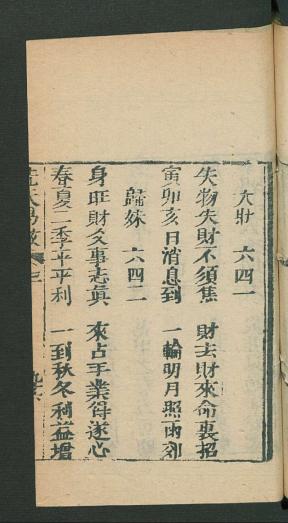 大壯　六四一
失物失財不須焦　財去財來命裏招
寅卯亥日消息到　一輪明月照雨郊
歸妹　六四二
身旺財爻事志真　來占手業得遂心
春夏二季平平利　一到秋冬利益增